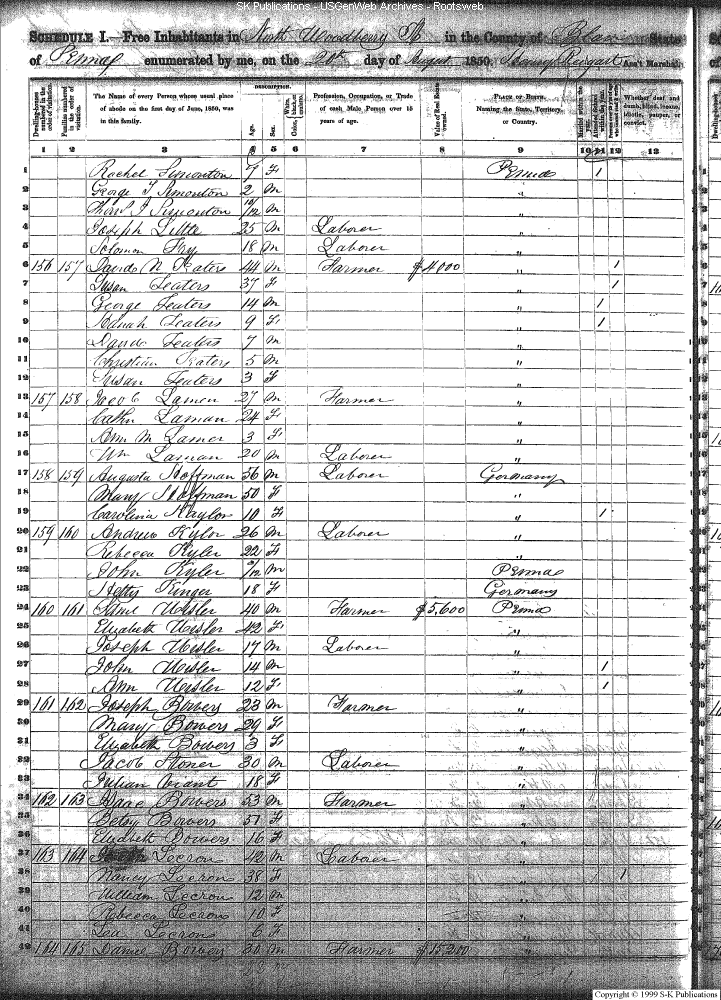 SK Publications - USGenWeb Archives - Rootsweb
SCHEDULE I.—Free Inhabitants in North Woodberry Tp in the County of Blair State
of Penna enumerated by me, on the 20th day of August 1850. Ass't Marshal.
DESCRIPTION.
Dwelling-houses numbered in the order of visitation. Families numbered in the order of visitation. The Name of every Person whose usual place of abode on the first day of June, 1850, was in this family. Age. Sex. White, black, or mulatto. Profession, Occupation, or Trade of each Male Person over 15 years of age. Value of Real Estate owned. PLACE OF BIRTH. Naming the State, Territory, or Country. Married within the year. Attended School within the year. Whether deaf and dumb, blind, insane, idiotic, pauper, or convict.
1 2 3 4 5 6 7 8 9 10 11 12 13
1 Rachel Simonton 7 F Penna 1
2 George T Simonton 2 M "
3 Simonton 10/12 M "
4 Joseph Little 25 M Laborer "
5 Solomon Fry 18 M Laborer "
6 156 157 David N Teaters 44 M Farmer $4000 " 1
7 Susan Teaters 37 F " 1
8 George Teaters 14 M " 1
9 Teaters 9 F " 1
10 David Teaters 7 M "
11 Christian Teaters 5 M "
12 Susan Teaters 3 F "
13 157 158 Jacob Lamen 27 M Farmer "
14 Cathn Laman 24 F "
15 Ann M Lamer 3 F "
16 Wm Laman 20 M Laborer "
17 158 159 Augusta Hoffman 56 M Laborer Germany
18 Mary Hoffman 50 F "
19 Carolina Kaylor 10 F " 1
20 159 160 Andrew Kylor 26 M Laborer "
21 Rebecca Kyler 22 F "
22 John Kyler /12 M Penna
23 Hetty 18 F Germany
24 160 161 Saml Uesler 40 M Farmer $5,600 Penna
25 Elizabeth Uesler 42 F "
26 Joseph Uesler 17 M Laborer "
27 John Uesler 14 M " 1
28 Ann Uesler 12 F " 1
29 161 162 Joseph Bowers 23 M Farmer "
30 Mary Bowers 29 F "
31 Elizabeth Bowers 3 F "
32 Jacob Stoner 30 M Laborer "
33 Julian 18 F "
34 162 163 Isaac Bowers 53 M Farmer "
35 Betsy Bowers 51 F "
36 Elizabeth Bowers 16 F "
37 163 164 Lecron 42 M Laborer "
38 Nancy Lecron 38 F " 1
39 William Lecron 12 M "
40 Rebecca Lecron 10 F "
41 Lea Lecron 6 F "
42 164 165 Daniel Bowers 30 M Farmer "
Copyright © 1999 S-K Publications